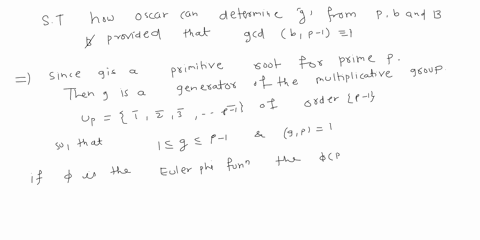 S.T how oscar can determine 'g' from P. b and B
provided that gcd (b, p-1) = 1
=) since g is a primitive root for prime p.
Then g is a generator of the multiplicative group
Up = { 1̄, 2̄, 3̄, ... p-1̄ } of order {p-1}
so, that 1 ≤ g ≤ p-1 & (g, p) = 1
if ϕ is the Euler phi funⁿ the ϕ(p